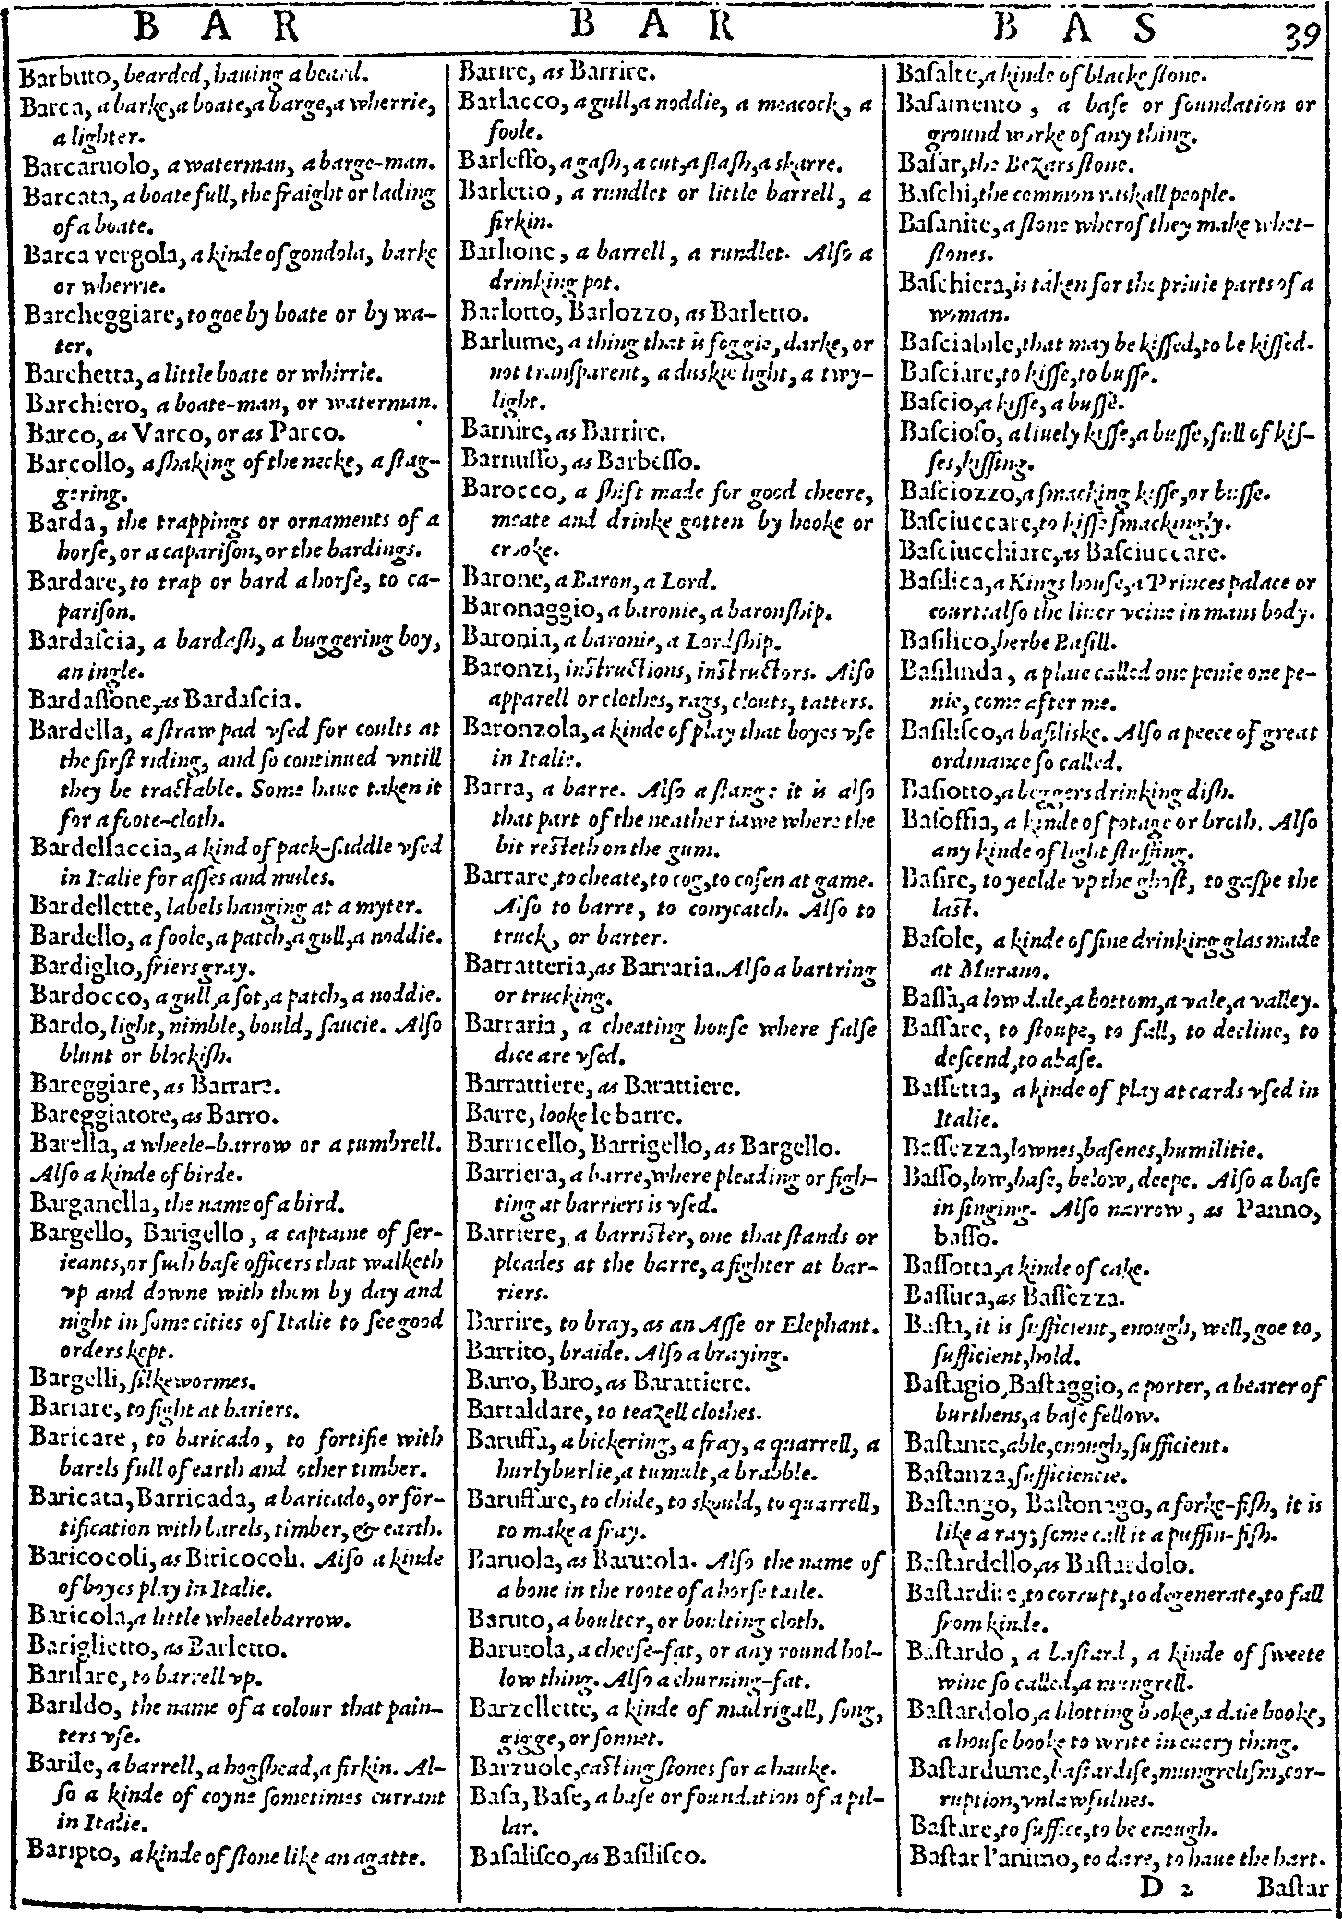 B A R B A R B A S 39
Barbuto, bearded, hauing a beard.
Barca, a barke, a boate, a barge, a wherrie,
a lighter.
Barcaruolo, a waterman, a barge-man.
Barcata, a boate full, the fraight or lading
of a boate.
Barca vergola, a kinde of gondola, barke
or wherrie.
Barcheggiare, to goe by boate or by wa-
ter.
Barchetta, a little boate or whirrie.
Barchiero, a boate-man, or waterman.
Barco, as Varco, or as Parco.
Barcollo, a ſhaking of the necke, a ſtag-
gering.
Barda, the trappings or ornaments of a
horſe, or a capariſon, or the bardings.
Bardare, to trap or bard a horſe, to ca-
pariſon.
Bardaſcia, a bardaſh, a buggering boy,
an ingle.
Bardaſſone, as Bardaſcia.
Bardella, a ſtraw pad vſed for coults at
the firſt riding, and ſo continued vntill
they be tractable. Some haue taken it
for a foote-cloth.
Bardellaccia, a kind of pack-ſaddle vſed
in Italie for aſſes and mules.
Bardellette, labels hanging at a myter.
Bardello, a foole, a patch, a gull, a noddie.
Bardiglio, friers gray.
Bardocco, a gull, a ſot, a patch, a noddie.
Bardo, light, nimble, bould, ſaucie. Alſo
blunt or blockiſh.
Bareggiare, as Barrare.
Bareggiatore, as Barro.
Barella, a wheele-barrow or a tumbrell.
Alſo a kinde of birde.
Barganella, the name of a bird.
Bargello, Barigello, a captaine of ſer-
ieants, or ſuch baſe officers that walketh
vp and downe with them by day and
night in ſome cities of Italie to ſee good
orders kept.
Bargelli, ſilkewormes.
Bariare, to fight at bariers.
Baricare, to baricado, to fortifie with
barels full of earth and other timber.
Baricata, Barricada, a baricado, or for-
tification with barels, timber, & earth.
Baricocoli, as Biricocoli. Alſo a kinde
of boyes play in Italie.
Baricola, a little wheelebarrow.
Bariglietto, as Barletto.
Barilare, to barrell vp.
Barildo, the name of a colour that pain-
ters vſe.
Barile, a barrell, a hogſhead, a firkin. Al-
ſo a kinde of coyne ſometimes currant
in Italie.
Baripto, a kinde of ſtone like an agatte.
Barire, as Barrire.
Barlacco, a gull, a noddie, a meacock, a
foole.
Barleſſo, a gaſh, a cut, a ſlaſh, a skarre.
Barletto, a rundlet or little barrell, a
firkin.
Barlione, a barrell, a rundlet. Alſo a
drinking pot.
Barlotto, Barlozzo, as Barletto.
Barlume, a thing that is foggie, darke, or
not tranſparent, a duskie light, a twy-
light.
Barnire, as Barrire.
Barnuſſo, as Barbeſſo.
Barocco, a ſhift made for good cheere,
meate and drinke gotten by hooke or
crooke.
Barone, a Baron, a Lord.
Baronaggio, a baronie, a baronſhip.
Baronia, a baronie, a Lordſhip.
Baronzi, inſtructions, inſtructors. Alſo
apparell or clothes, rags, clouts, tatters.
Baronzola, a kinde of play that boyes vſe
in Italie.
Barra, a barre. Alſo a ſtang: it is alſo
that part of the neather iawe where the
bit reſteth on the gum.
Barrare, to cheate, to cog, to coſen at game.
Alſo to barre, to conycatch. Alſo to
truck, or barter.
Barratteria, as Barraria. Alſo a bartring
or trucking.
Barraria, a cheating houſe where falſe
dice are vſed.
Barrattiere, as Barattiere.
Barre, looke le barre.
Barricello, Barrigello, as Bargello.
Barriera, a barre, where pleading or figh-
ting at barriers is vſed.
Barriere, a barriſter, one that ſtands or
pleades at the barre, a fighter at bar-
riers.
Barrire, to bray, as an Aſſe or Elephant.
Barrito, braide. Alſo a braying.
Barro, Baro, as Barattiere.
Bartaldare, to teazell clothes.
Baruffa, a bickering, a fray, a quarrell, a
hurlyburlie, a tumult, a brabble.
Baruffare, to chide, to skould, to quarrell,
to make a fray.
Baruola, as Barutola. Alſo the name of
a bone in the roote of a horſe taile.
Baruto, a boulter, or boulting cloth.
Barutola, a cheeſe-fat, or any round hol-
low thing. Alſo a churning-fat.
Barzellette, a kinde of madrigall, ſong,
gigge, or ſonnet.
Barzuole, caſting ſtones for a hauke.
Baſa, Baſe, a baſe or foundation of a pil-
lar.
Baſaliſco, as Baſiliſco.
Baſalte, a kinde of blacke ſtone.
Baſamento, a baſe or foundation or
ground worke of any thing.
Baſar, the Bezars ſtone.
Baſchi, the common raskall people.
Baſanite, a ſtone wherof they make whet-
ſtones.
Baſchiera, is taken for the priuie parts of a
woman.
Baſciabile, that may be kiſſed, to be kiſſed.
Baſciare, to kiſſe, to buſſe.
Baſcio, a kiſſe, a buſſe.
Baſcioſo, a liuely kiſſe, a buſſe, full of kiſ-
ſes, kiſſing.
Baſciozzo, a ſmacking kiſſe, or buſſe.
Baſciuccare, to kiſſe ſmackingly.
Baſciucchiare, as Baſciuccare.
Baſilica, a Kings houſe, a Princes palace or
court: alſo the liuer veine in mans body.
Baſilico, herbe Baſill.
Baſilinda, a plaie called one penie one pe-
nie, come after me.
Baſiliſco, a baſiliske. Alſo a peece of great
ordinance ſo called.
Baſiotto, a beggers drinking diſh.
Baſoffia, a kinde of potage or broth. Alſo
any kinde of light ſtuffing.
Baſire, to yeelde vp the ghoſt, to gaſpe the
laſt.
Baſole, a kinde of fine drinking glas made
at Murano.
Baſſa, a low dale, a bottom, a vale, a valley.
Baſſare, to ſtoupe, to fall, to decline, to
deſcend, to abaſe.
Baſſetta, a kinde of play at cards vſed in
Italie.
Baſſezza, lownes, baſenes, humilitie.
Baſſo, low, baſe, below, deepe. Alſo a baſe
in ſinging. Alſo narrow, as Panno,
baſſo.
Baſſotta, a kinde of cake.
Baſſura, as Baſſezza.
Baſta, it is ſufficient, enough, well, goe to,
ſufficient, hold.
Baſtagio, Baſtaggio, a porter, a bearer of
burthens, a baſe fellow.
Baſtante, able, enough, ſufficient.
Baſtanza, ſufficiencie.
Baſtango, Baſtonago, a forke-fiſh, it is
like a ray; ſome call it a puffin-fiſh.
Baſtardello, as Baſtardolo.
Baſtardire, to corrupt, to degenerate, to fall
from kinde.
Baſtardo, a baſtard, a kinde of ſweete
wine ſo called, a mungrell.
Baſtardolo, a blotting booke, a daie booke,
a houſe booke to write in euery thing.
Baſtardume, baſtardiſe, mungreliſm, cor-
ruption, vnlawfulnes.
Baſtare, to ſuffice, to be enough.
Baſtar l'animo, to dare, to haue the hart.
D 2 Baſtar